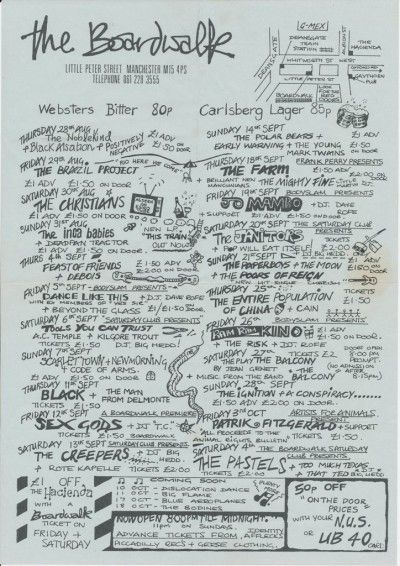 the Boardwalk
LITTLE PETER STREET MANCHESTER M15 4PS
TELEPHONE 061 228 3555
G-MEX
DEANSGATE
DEANSGATE TRAIN STATION
ALBION ST
THE HACIENDA
WHITWORTH ST WEST
LITTLE PETER ST
BOARDWALK
Websters Bitter 80p
Carlsberg Lager 85p
THURSDAY 28th AUG
The Noblekind
+ Black Alsation + POSITIVELY NEGATIVE
£1 ADV
£1·50 ON DOOR
FRIDAY 29th AUG.
THE MARK TWAIN PROJECT
£1 ADV £1·50 ON DOOR
SATURDAY 30th AUG
THE CHRISTIANS
£1 ADV £1·50 ON DOOR
SUNDAY 31st AUG
The inca babies
+ DEADPAN TRACTOR
£1 ADV £1·50 ON DOOR
NEW L.P.
"THIS TRAIN"
OUT NOW
THURS 4th SEPT
FEAST OF FRIENDS
+ DEBRIS
£1·50 ADV
£2·00 ON DOOR
FRIDAY 5th SEPT - BODYSLAM PRESENTS
DANCE LIKE THIS + D.J. DAVE ROFE
+ BEYOND THE GLASS
SATURDAY 6th SEPT SATURDAY CLUB PRESENTS
TOOLS YOU CAN TRUST
A.C. TEMPLE + KILGORE TROUT
TICKETS £1·50 D.J. BIG HEDD!
SUNDAY 7th SEPT
SCARLET TOWN + NEW MORNING
+ CODE OF ARMS.
£1 ADV £1·50 ON DOOR
THURSDAY 11th SEPT
BLACK + THE MAN FROM DELMONTE
TICKETS £1·50
FRIDAY 12th SEPT A BOARDWALK PREMIERE
SEX GODS + D.J. "T.C."
TICKETS £1·50 BOARDWALK
SATURDAY 13th SEPT SATURDAY CLUB PRESENTS
THE CREEPERS + D.J. BIG HEDD.
+ ROTE KAPELLE TICKETS £2.00
SUNDAY 14th SEPT
THE POLAR BEARS +
EARLY WARNING + THE YOUNG BRAZILIANS
£1 ADV
£1·50 ON DOOR
THURSDAY 18th SEPT FRANK PERRY PRESENTS
THE FARM
£1·50 ADV
£2.00 ON DOOR
+ BRILLIANT NEW MANCUNIANS THE MIGHTY FINE
FRIDAY 19th SEPT BODYSLAM PRESENTS
JO MAMBO + D.J. DAVE ROFE
+ SUPPORT £1 ADV £1·50 ON DOOR
SATURDAY 20th SEPT THE SATURDAY CLUB PRESENTS
The JANITORS
+ POP WILL EAT ITSELF
TICKETS £2·00
D.J. BIG HEDD
SUNDAY 21st SEPT
THE PAPERBOYS + THE MOON
+ THE POOLS OF REIGN
£1 ADV
£1·50 ON DOOR
THURSDAY 25th SEPT
THE ENTIRE POPULATION OF CHINA + CAIN
TICKETS £1·50
FRIDAY 26th BODYSLAM PRESENTS
RAM RAM KINO
+ THE RISK + D.J. ROFE
£1 ADV £1·50 ON DOOR
SATURDAY 27th
THE PLAY THE BALCONY
BY JEAN GENET
+ MUSIC FROM THE BAND BALCONY
TICKETS £2
8·00 PM PROMPT.
(NO ADMISSION AFTER 8·15pm)
SUNDAY 28th SEPT
THE IGNITION + A CONSPIRACY.......
£1 ADV £1·50 ON DOOR
FRIDAY 3rd OCT ARTISTS FOR ANIMALS PRESENT
PATRIK FITZGERALD + SUPPORT
ALL PROCEEDS TO THE ANIMAL RIGHTS BULLETIN
TICKETS £1·50.
SATURDAY 4th THE BOARDWALK SATURDAY CLUB PRESENTS
THE PASTELS + TOO MUCH TODAY
TICKETS £2·00
+ D.J. THAT TED BIG HEDD
£1 OFF
THE Hacienda
WITH Boardwalk
TICKET ON
FRIDAY +
SATURDAY
COMING SOON
10 OCT - DISLOCATION DANCE
11 OCT - BIG FLAME
17 OCT - BLUE AEROPLANES
18 OCT - THE BODINES
NOW OPEN 8.00PM TILL MIDNIGHT.
11PM ON SUNDAYS.
ADVANCE TICKETS FROM, IDENTITY, AFFLECKS
PICCADILLY RECS + GEESE CLOTHING.
50p OFF
ON THE DOOR PRICES
WITH YOUR N.U.S.
OR UB 40 CARD